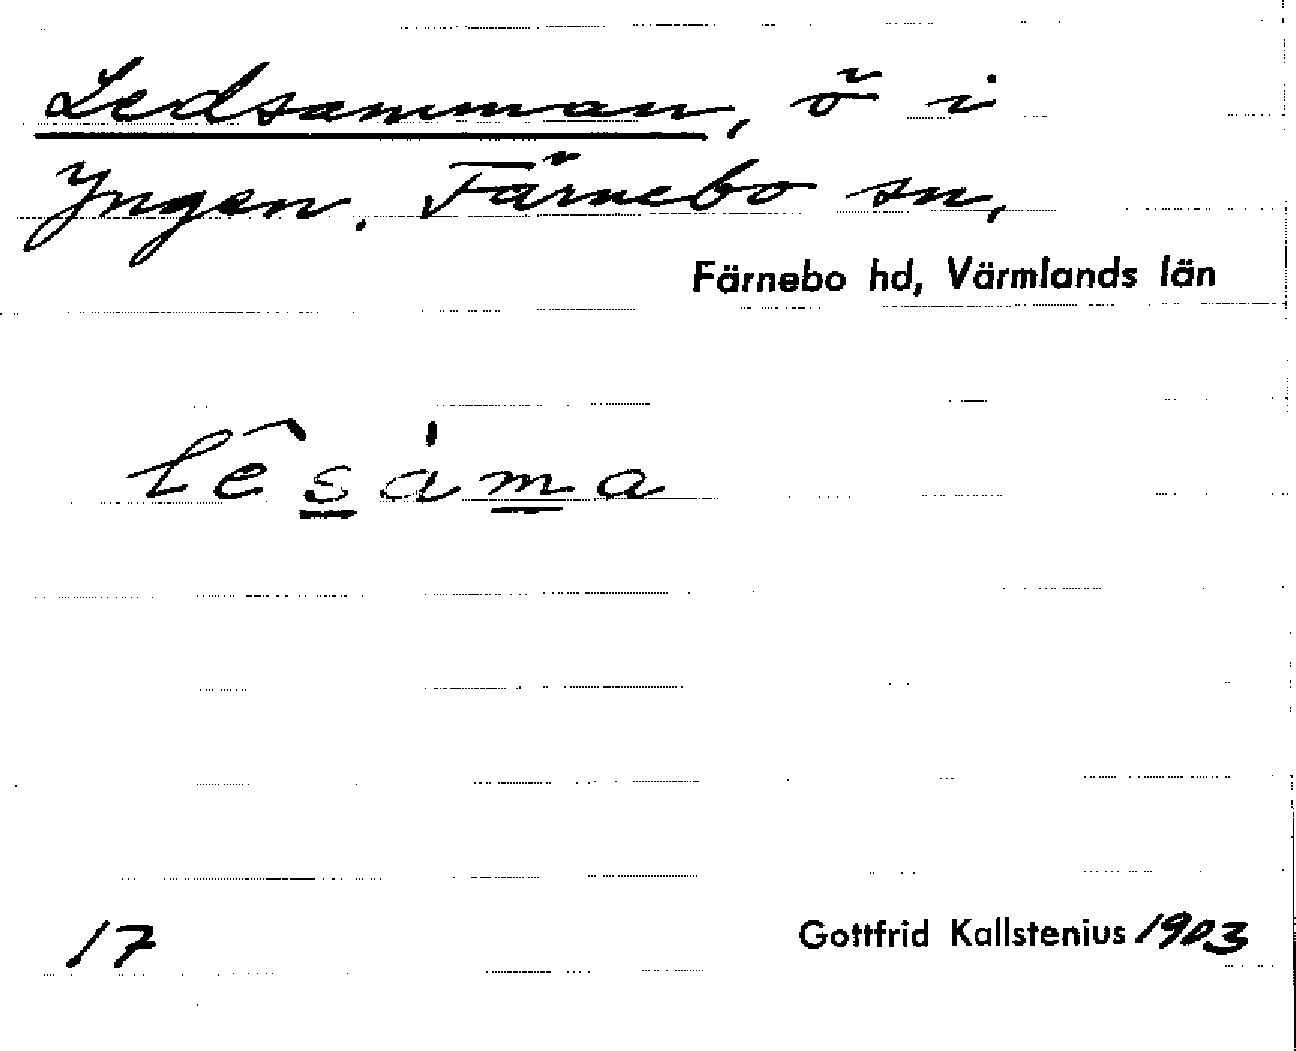 Ledsamman, ö i
Yngen. Färnebo sn,
Färnebo hd, Värmlands län
lêsȧma
17 Gottfrid Kallstenius 1903